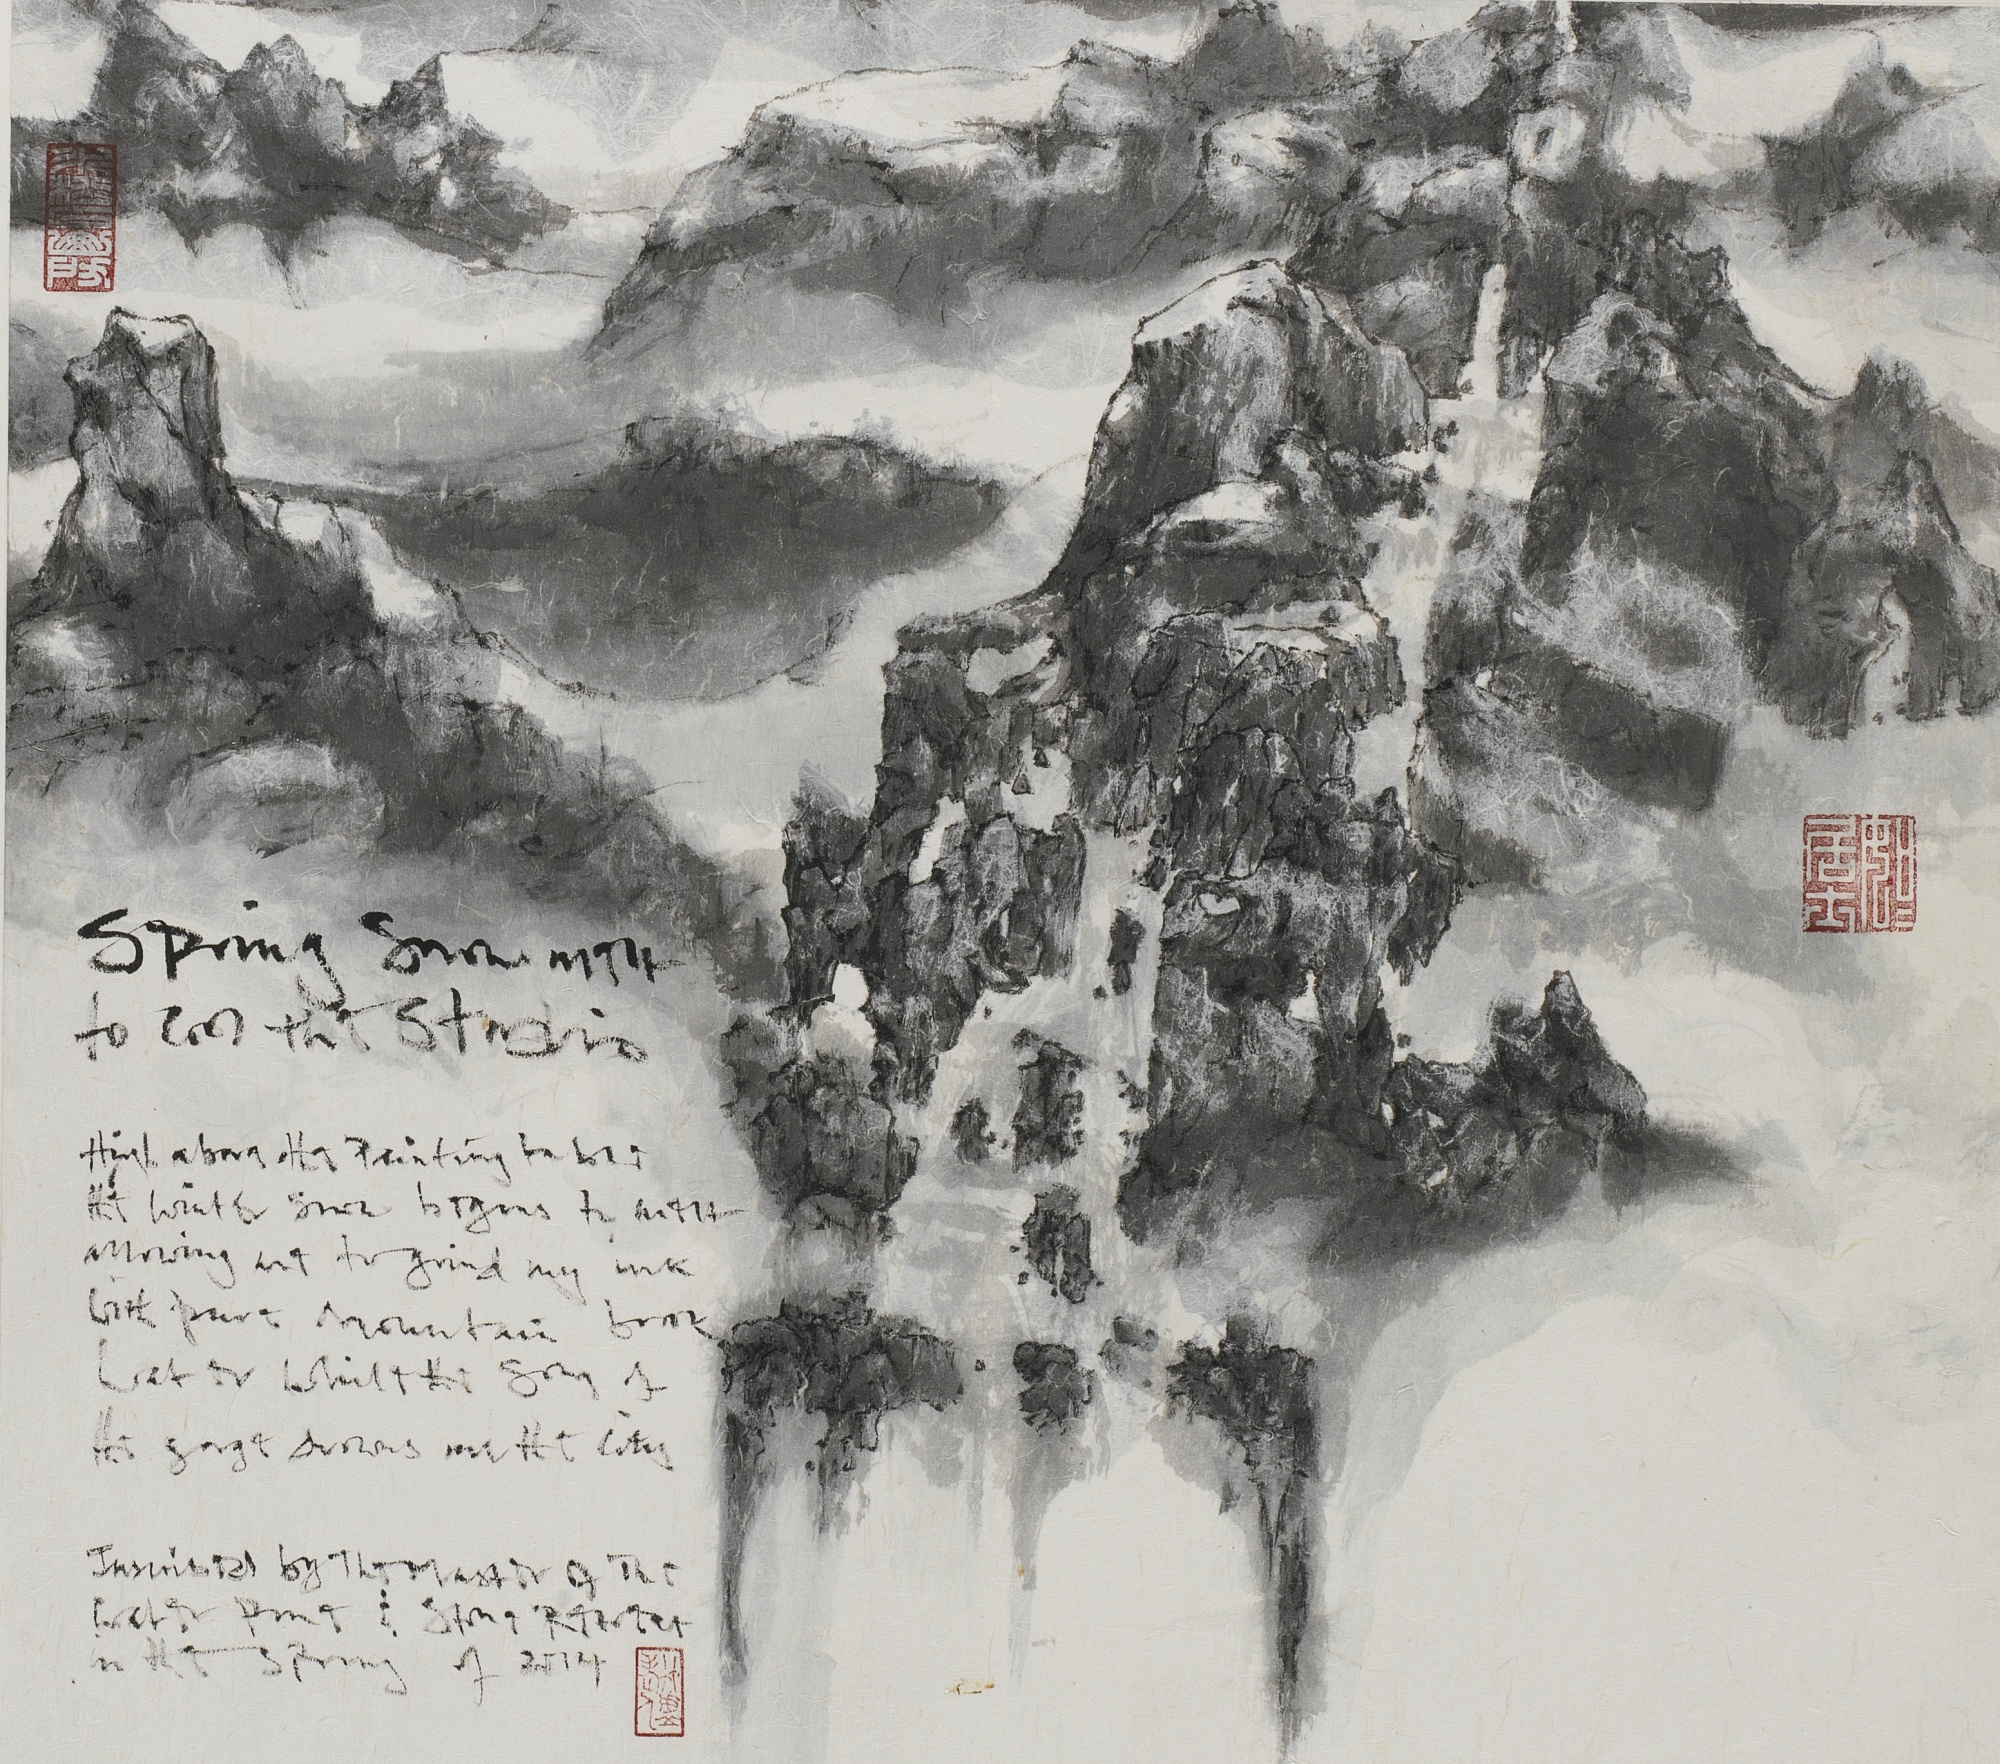 Spring Snow melt
to cool the Studio
High above the Painting tables
the winter snow begins to melt
allowing me to grind my ink
with pure mountain brook
water whilst the song of
the gorge drowns out the city
Inscribed by The Master of The
Water Pine & Stone Retreat
in the Spring of 2014